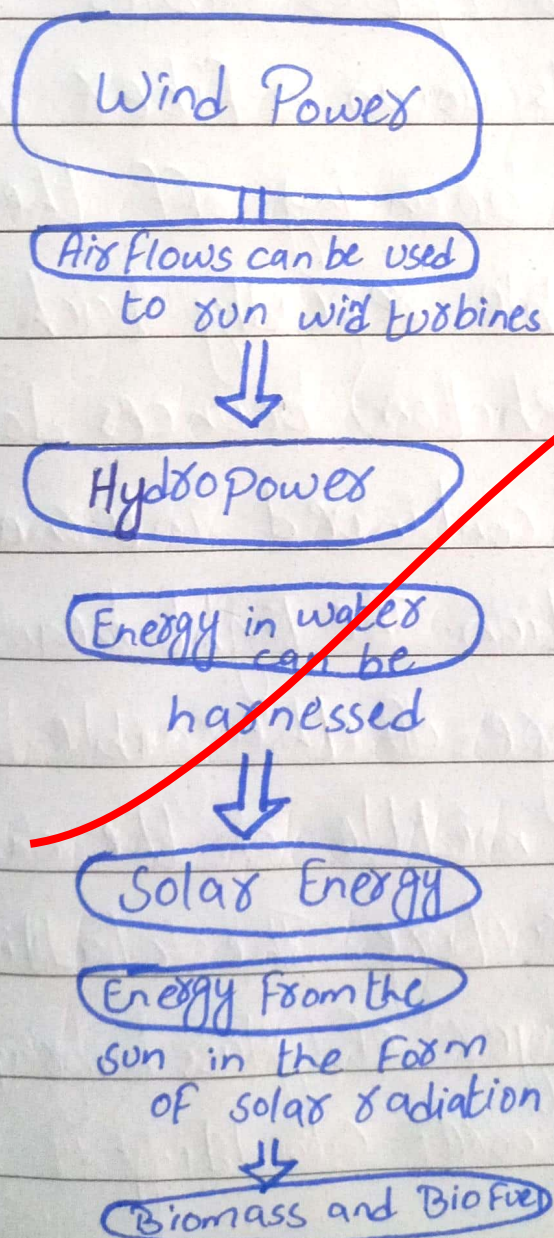 Wind Power
Air flows can be used
to run wid turbines
Hydropower
Energy in water
can be
harnessed
Solar Energy
Energy From the
sun in the Form
of solar radiation
Biomass and BioFuel